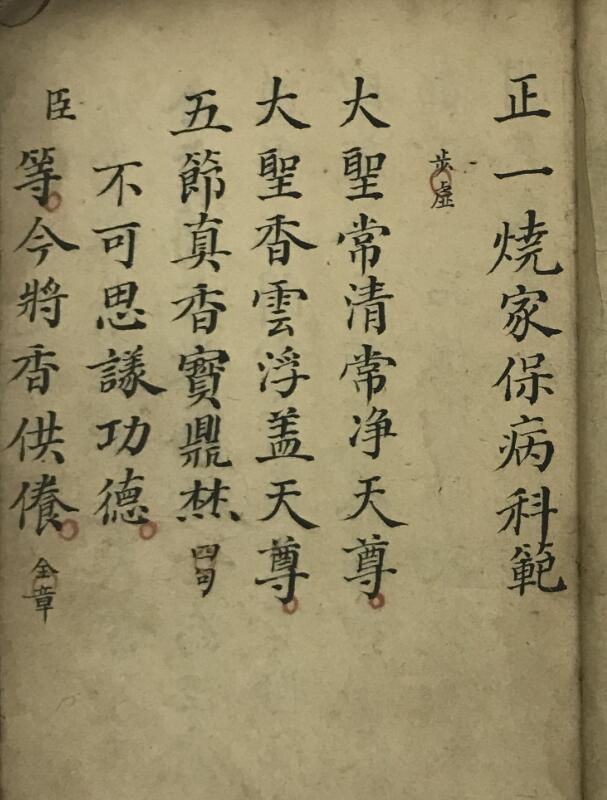 正一燒家保病科範
步虛
大聖常清常净天尊
大聖香雲浮盖天尊
五節真香寳鼎焚 四句
不可思議功德
臣等今將香供養 全章